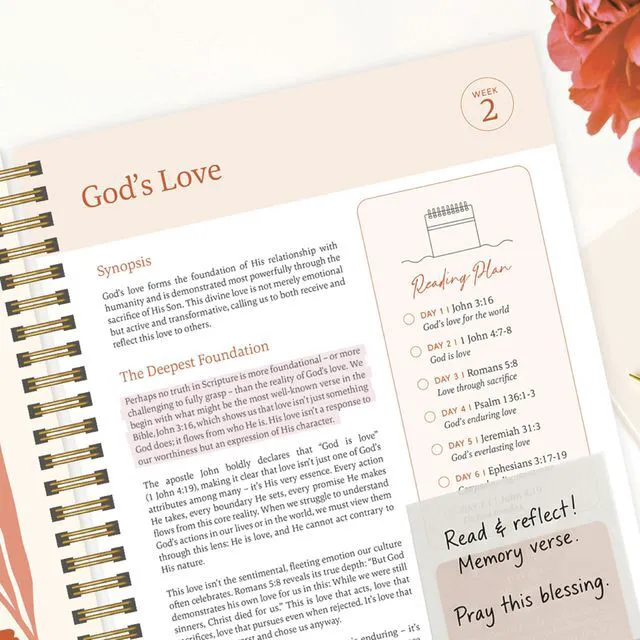 WEEK
2
God's Love
Synopsis
God's love forms the foundation of His relationship with
humanity and is demonstrated most powerfully through the
sacrifice of His Son. This divine love is not merely emotional
but active and transformative, calling us to both receive and
reflect this love to others.
The Deepest Foundation
Perhaps no truth in Scripture is more foundational – or more
challenging to fully grasp – than the reality of God's love. We
begin with what might be the most well-known verse in the
Bible, John 3:16, which shows us that love isn't just something
God does; it flows from who He is. His love isn't a response to
our worthiness but an expression of His character.
The apostle John boldly declares that "God is love"
(1 John 4:19), making it clear that love isn't just one of God's
attributes among many – it's His very essence. Every action
He takes, every boundary He sets, every promise He makes
flows from this core reality. When we struggle to understand
God's actions in our lives or in the world, we must view them
through this lens: He is love, and He cannot act contrary to
His nature.
This love isn't the sentimental, fleeting emotion our culture
often celebrates. Romans 5:8 reveals its true depth: "But God
demonstrates his own love for us in this: While we were still
sinners, Christ died for us." This is love that acts, love that
sacrifices, love that pursues even when rejected. It's love that
and chose us anyway.
is enduring – it's
Reading Plan
DAY 1 | John 3:16
God's love for the world
DAY 2 | 1 John 4:7-8
God is love
DAY 3 | Romans 5:8
Love through sacrifice
DAY 4 | Psalm 136:1-3
God's enduring love
DAY 5 | Jeremiah 31:3
God's everlasting love
DAY 6 | Ephesians 3:17-19
DAY 7 | 1 John 4:19
Read & reflect!
Memory verse.
Pray this blessing.